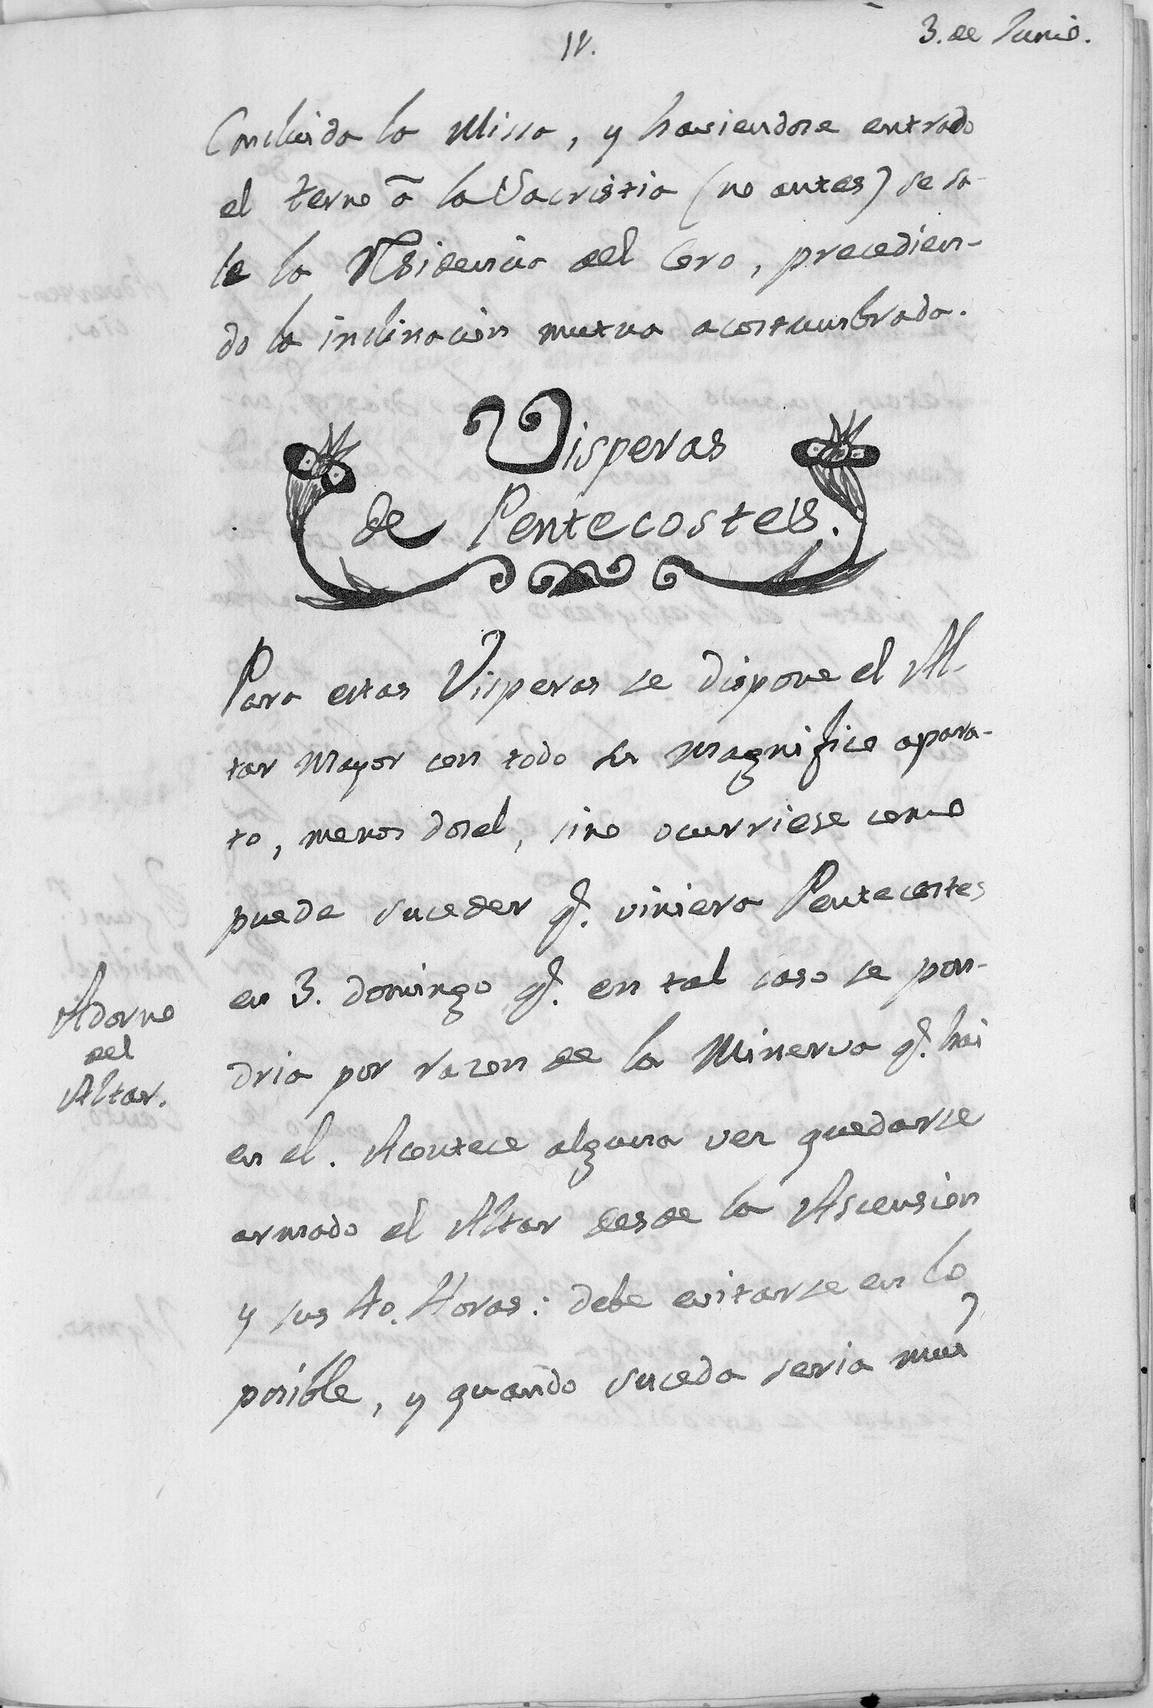 11.
3. de Junio.
Concluida la Missa, y haviendose entrado
el terno â la Sacristia (no antes) se sa-
le la Rsidencia del Coro, precedien-
do la inclinacion mutua acostumbrada.
Visperas
de Pentecostes.
Para estas Visperas se dispone el Al-
tar Mayor con todo su magnifico apara-
to, menos dosel, sino ocurriese como
puede suceder q.e viniera Pentecostes
en 3. domingo q.e en tal caso se pon-
dria por razon de la Minerva q.e hai
en el. Acontece alguna vez quedarse
armado el Altar desde la Ascension
y sus 40. Horas: debe evitarse en lo
posible, y quando suceda seria mui
Adorno
del
Altar.